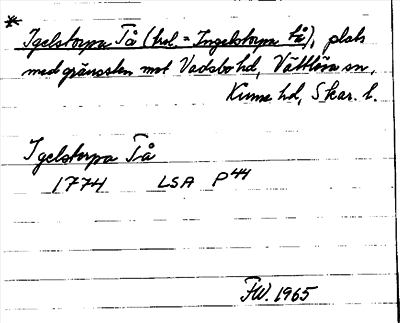 * Igelstorpa Tå (trol = Ingelstorpa tå), plats
med gränssten mot Vadsbo hd, Vättlösa sn,
Kinne hd, Skar. l.
Igelstorpa Tå
1774 LSA P44
FW. 1965